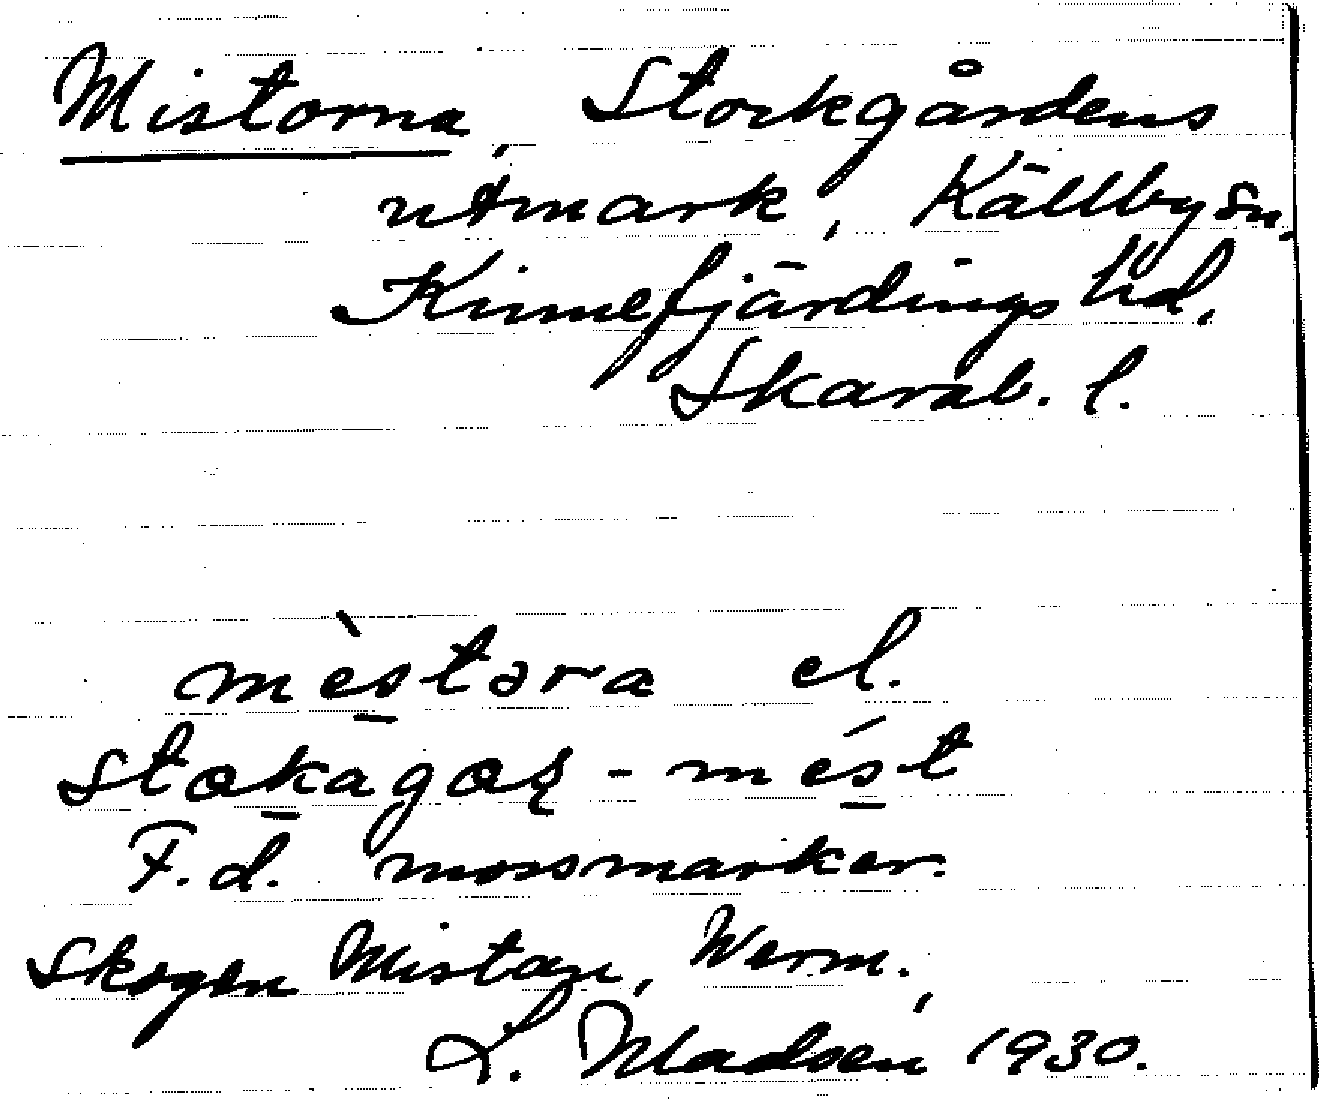 Mistorna, Storkgårdens
utmark, Källby sn.
Kinnefjärdings hd.
Skarab. l.
mèstəra el.
stɷkagɷʂ - mést
F.d. mossmarker.
Skogen Mistan, Werm.,
L. Madsen 1930.